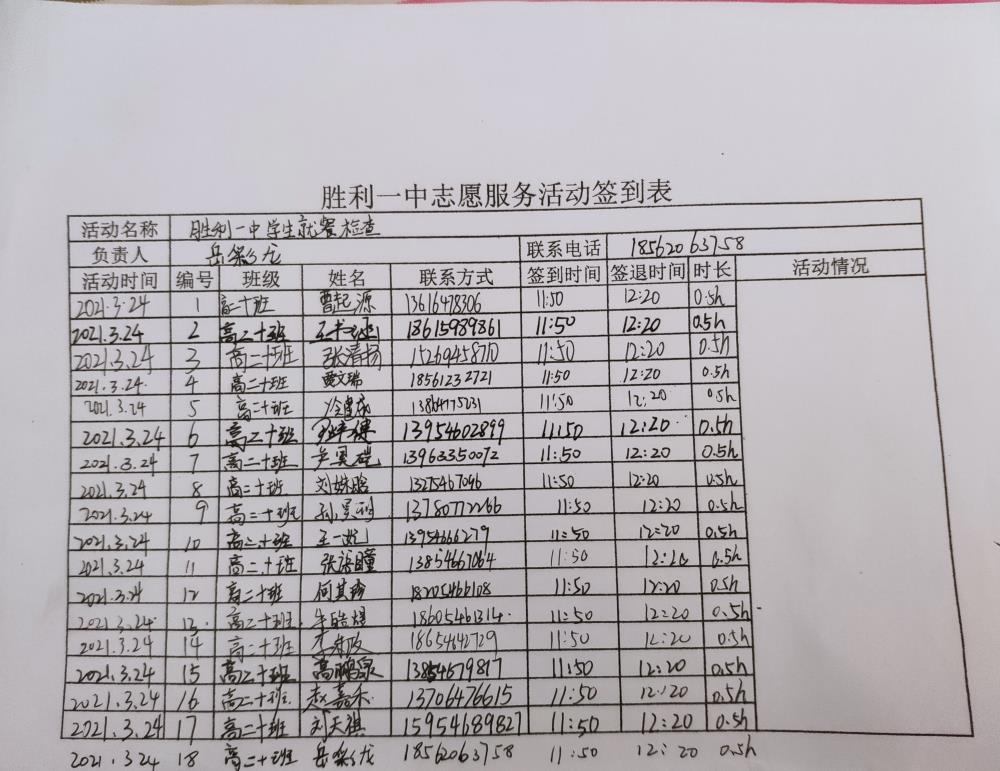 胜利一中志愿服务活动签到表
活动名称 胜利一中学生就餐检查
负责人 岳彩龙 联系电话 18562063758
活动时间 编号 班级 姓名 联系方式 签到时间 签退时间 时长 活动情况
2021.3.24 1 高二十班 曹起源 13616478306 11:50 12:20 0.5h
2021.3.24 2 高二十班 18615989861 11:50 12:20 0.5h
2021.3.24 3 高二十班 张清扬 15269458710 11:50 12:20 0.5h
2021.3.24. 4 高二十班 贾文瑞 18561232721 11:50 12:20 0.5h
2021.3.24 5 高二十班 11:50 12:20 0.5h
2021.3.24 6 高二十班 13954602899 11:50 12:20 0.5h
2021.3.24 7 高二十班 13963350072 11:50 12:20 0.5h
2021.3.24 8 高二十班 刘姝晗 13275467096 11:50 12:20 0.5h
2021.3.24 9 高二十班 13780772266 11:50 12:20 0.5h
2021.3.24 10 高二十班 13954666279 11:50 12:20 0.5h
2021.3.24 11 高二十班 13854667064 11:50 12:20 0.5h
2021.3.24 12 高二十班 18205466108 11:50 12:20 0.5h
2021.3.24. 13 高二十班 牛皓煜 18605461314 11:50 12:20 0.5h
2021.3.24 14 高二十班 18654642729 11:50 12:20 0.5h
2021.3.24 15 高二十班 高鹏泉 13854679817 11:50 12:20 0.5h
2021.3.24 16 高二十班 赵嘉禾 13706476615 11:50 12:20 0.5h
2021.3.24 17 高二十班 刘天祺 15954689827 11:50 12:20 0.5h
2021.3.24 18 高二十班 岳彩龙 18562063758 11:50 12:20 0.5h